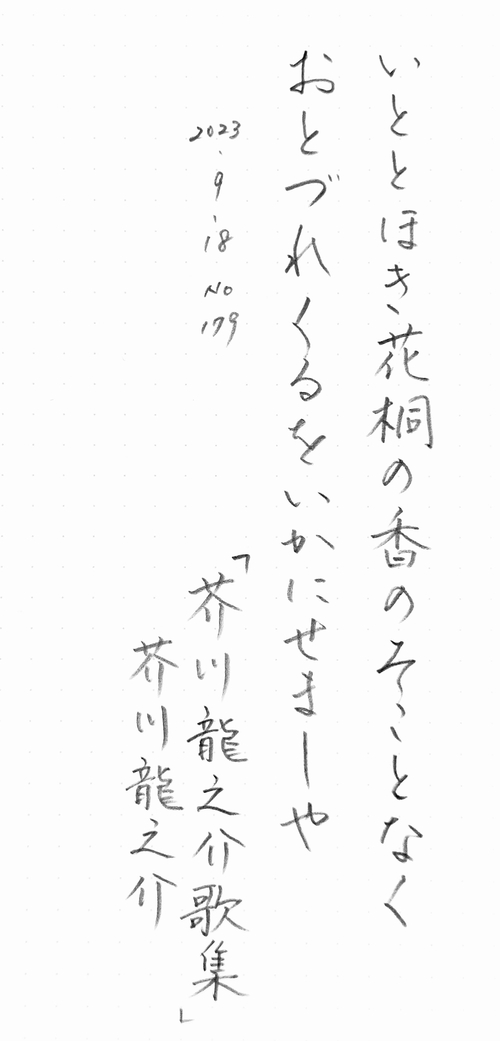 いととほき花桐の香のそことなく
おとづれくるをいかにせましや
2023.9.18 No 179
「芥川龍之介歌集」
芥川龍之介